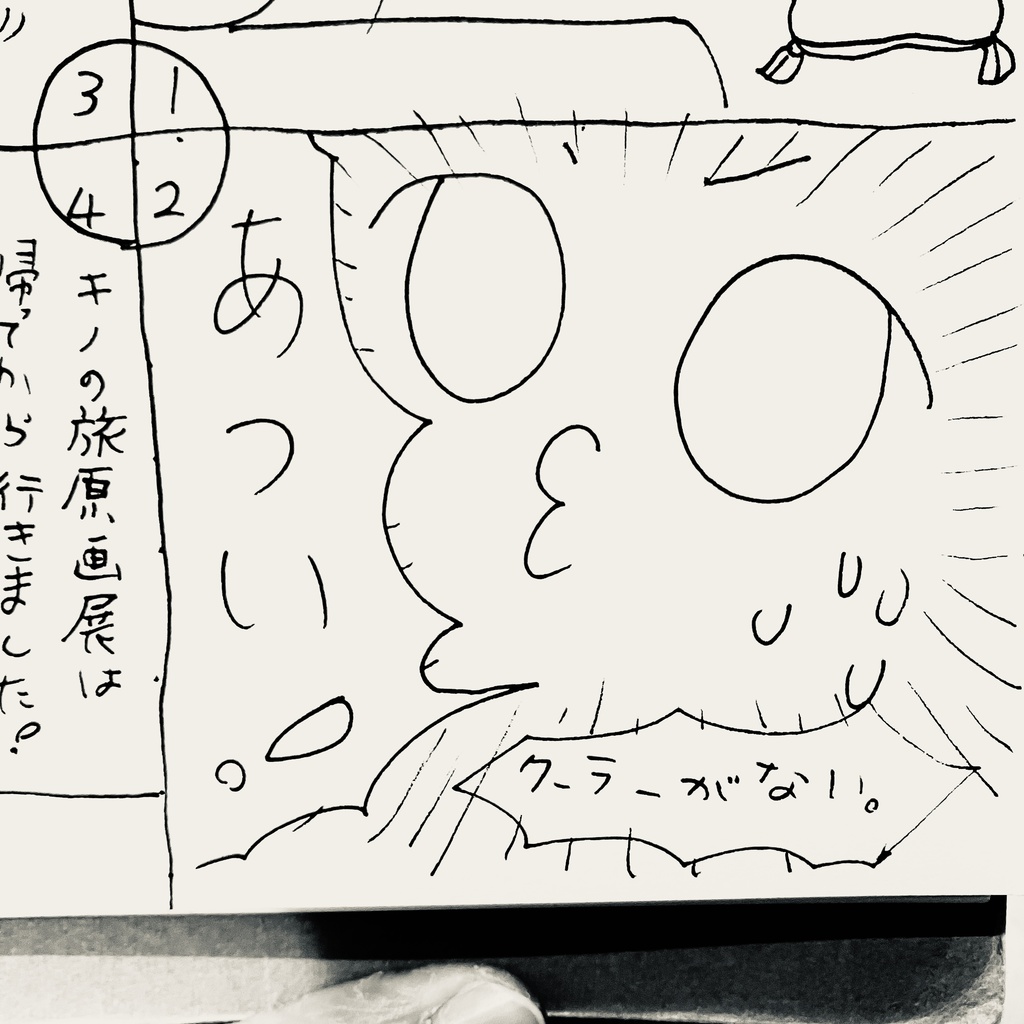 3 1
4 2
あつい。
クーラーがない。
キノの旅原画展は
帰ってから行きました?